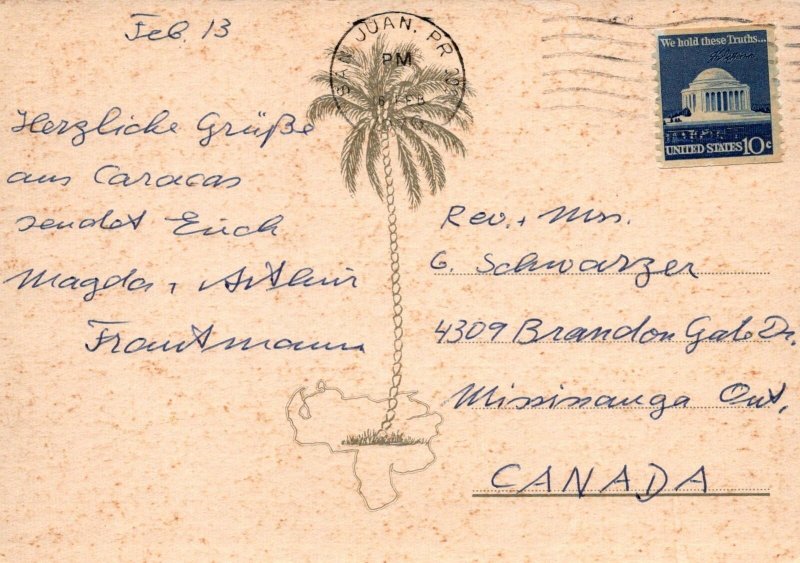 Feb. 13
Herzliche Grüße
aus Caracas
sendet Euch
Magda + Arthur
Frautmann
SAN JUAN, PR
PM
FEB
We hold these Truths...
UNITED STATES 10c
Rev. + Mrs.
G. Schwarzer
4309 Brandon Gate Dr.
Missisauga Ont.
CANADA